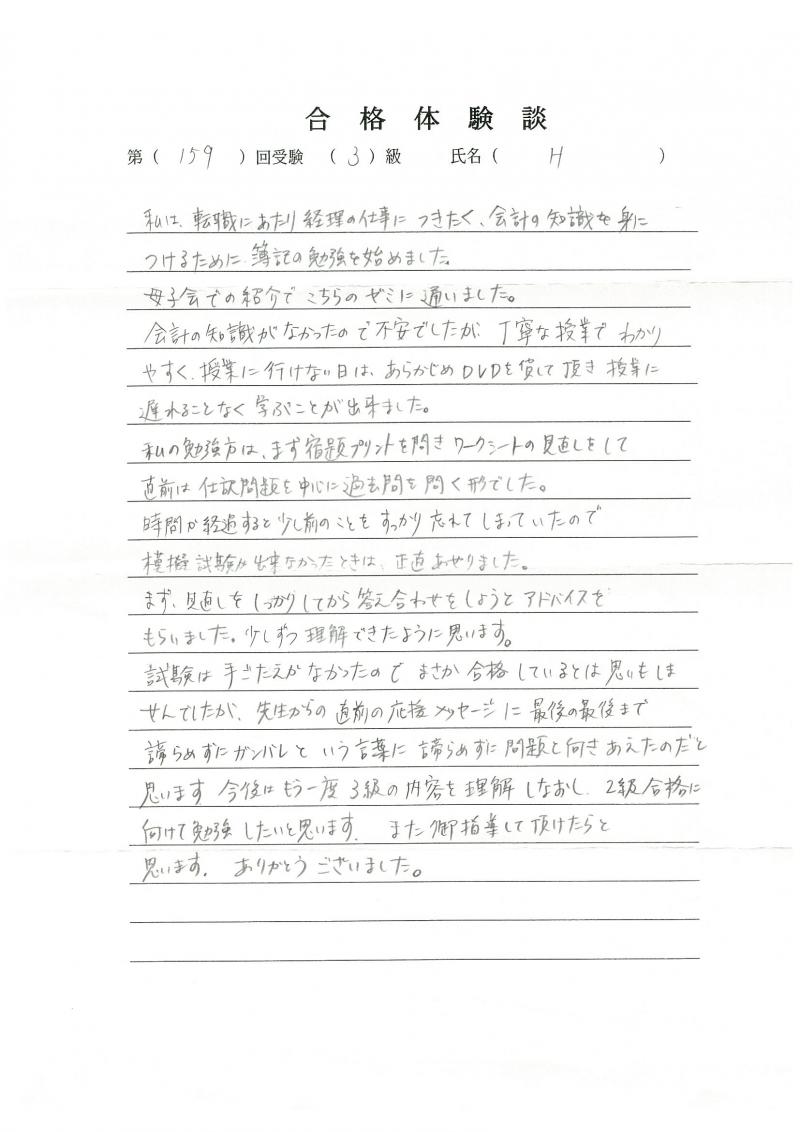 合格体験談
第（ 159 ）回受験 （ 3 ）級 氏名（ H ）
私は、転職にあたり経理の仕事につきたく、会計の知識を身に
つけるために簿記の勉強を始めました。
母子会での紹介でこちらのゼミに通いました。
会計の知識がなかったので不安でしたが、丁寧な授業でわかり
やすく、授業に行けない日は、あらかじめDVDを貸して頂き授業に
遅れることなく学ぶことが出来ました。
私の勉強方は、まず宿題プリントを開きワークシートの見直しをして
直前は仕訳問題を中心に過去問を問く形でした。
時間が経過すると少し前のことをすっかり忘れてしまっていたので
模擬試験が出来なかったときは、正直あせりました。
まず、見直しをしっかりしてから答え合わせをしようとアドバイスを
もらいました。少しずつ理解できたように思います。
試験は手ごたえがなかったのでまさか合格しているとは思いもしま
せんでしたが、先生からの直前の応援メッセージに最後の最後まで
諦らめずにガンバレという言葉に諦らめずに問題と向きあえたのだと
思います 今後はもう一度3級の内容を理解しなおし、2級合格に
向けて勉強したいと思います。 また御指業して頂けたらと
思います。 ありがとうございました。